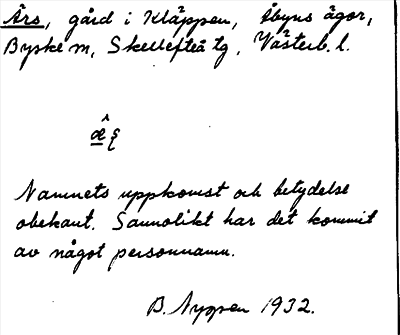 Års, gård i Kläppen, Åbyns ägor,
Byske m, Skellefteå tg, Västerb. l.
Namnets uppkomst och betydelse
obekant. Sannolikt har det kommit
av något personnamn.
B. Nyppen 1932.